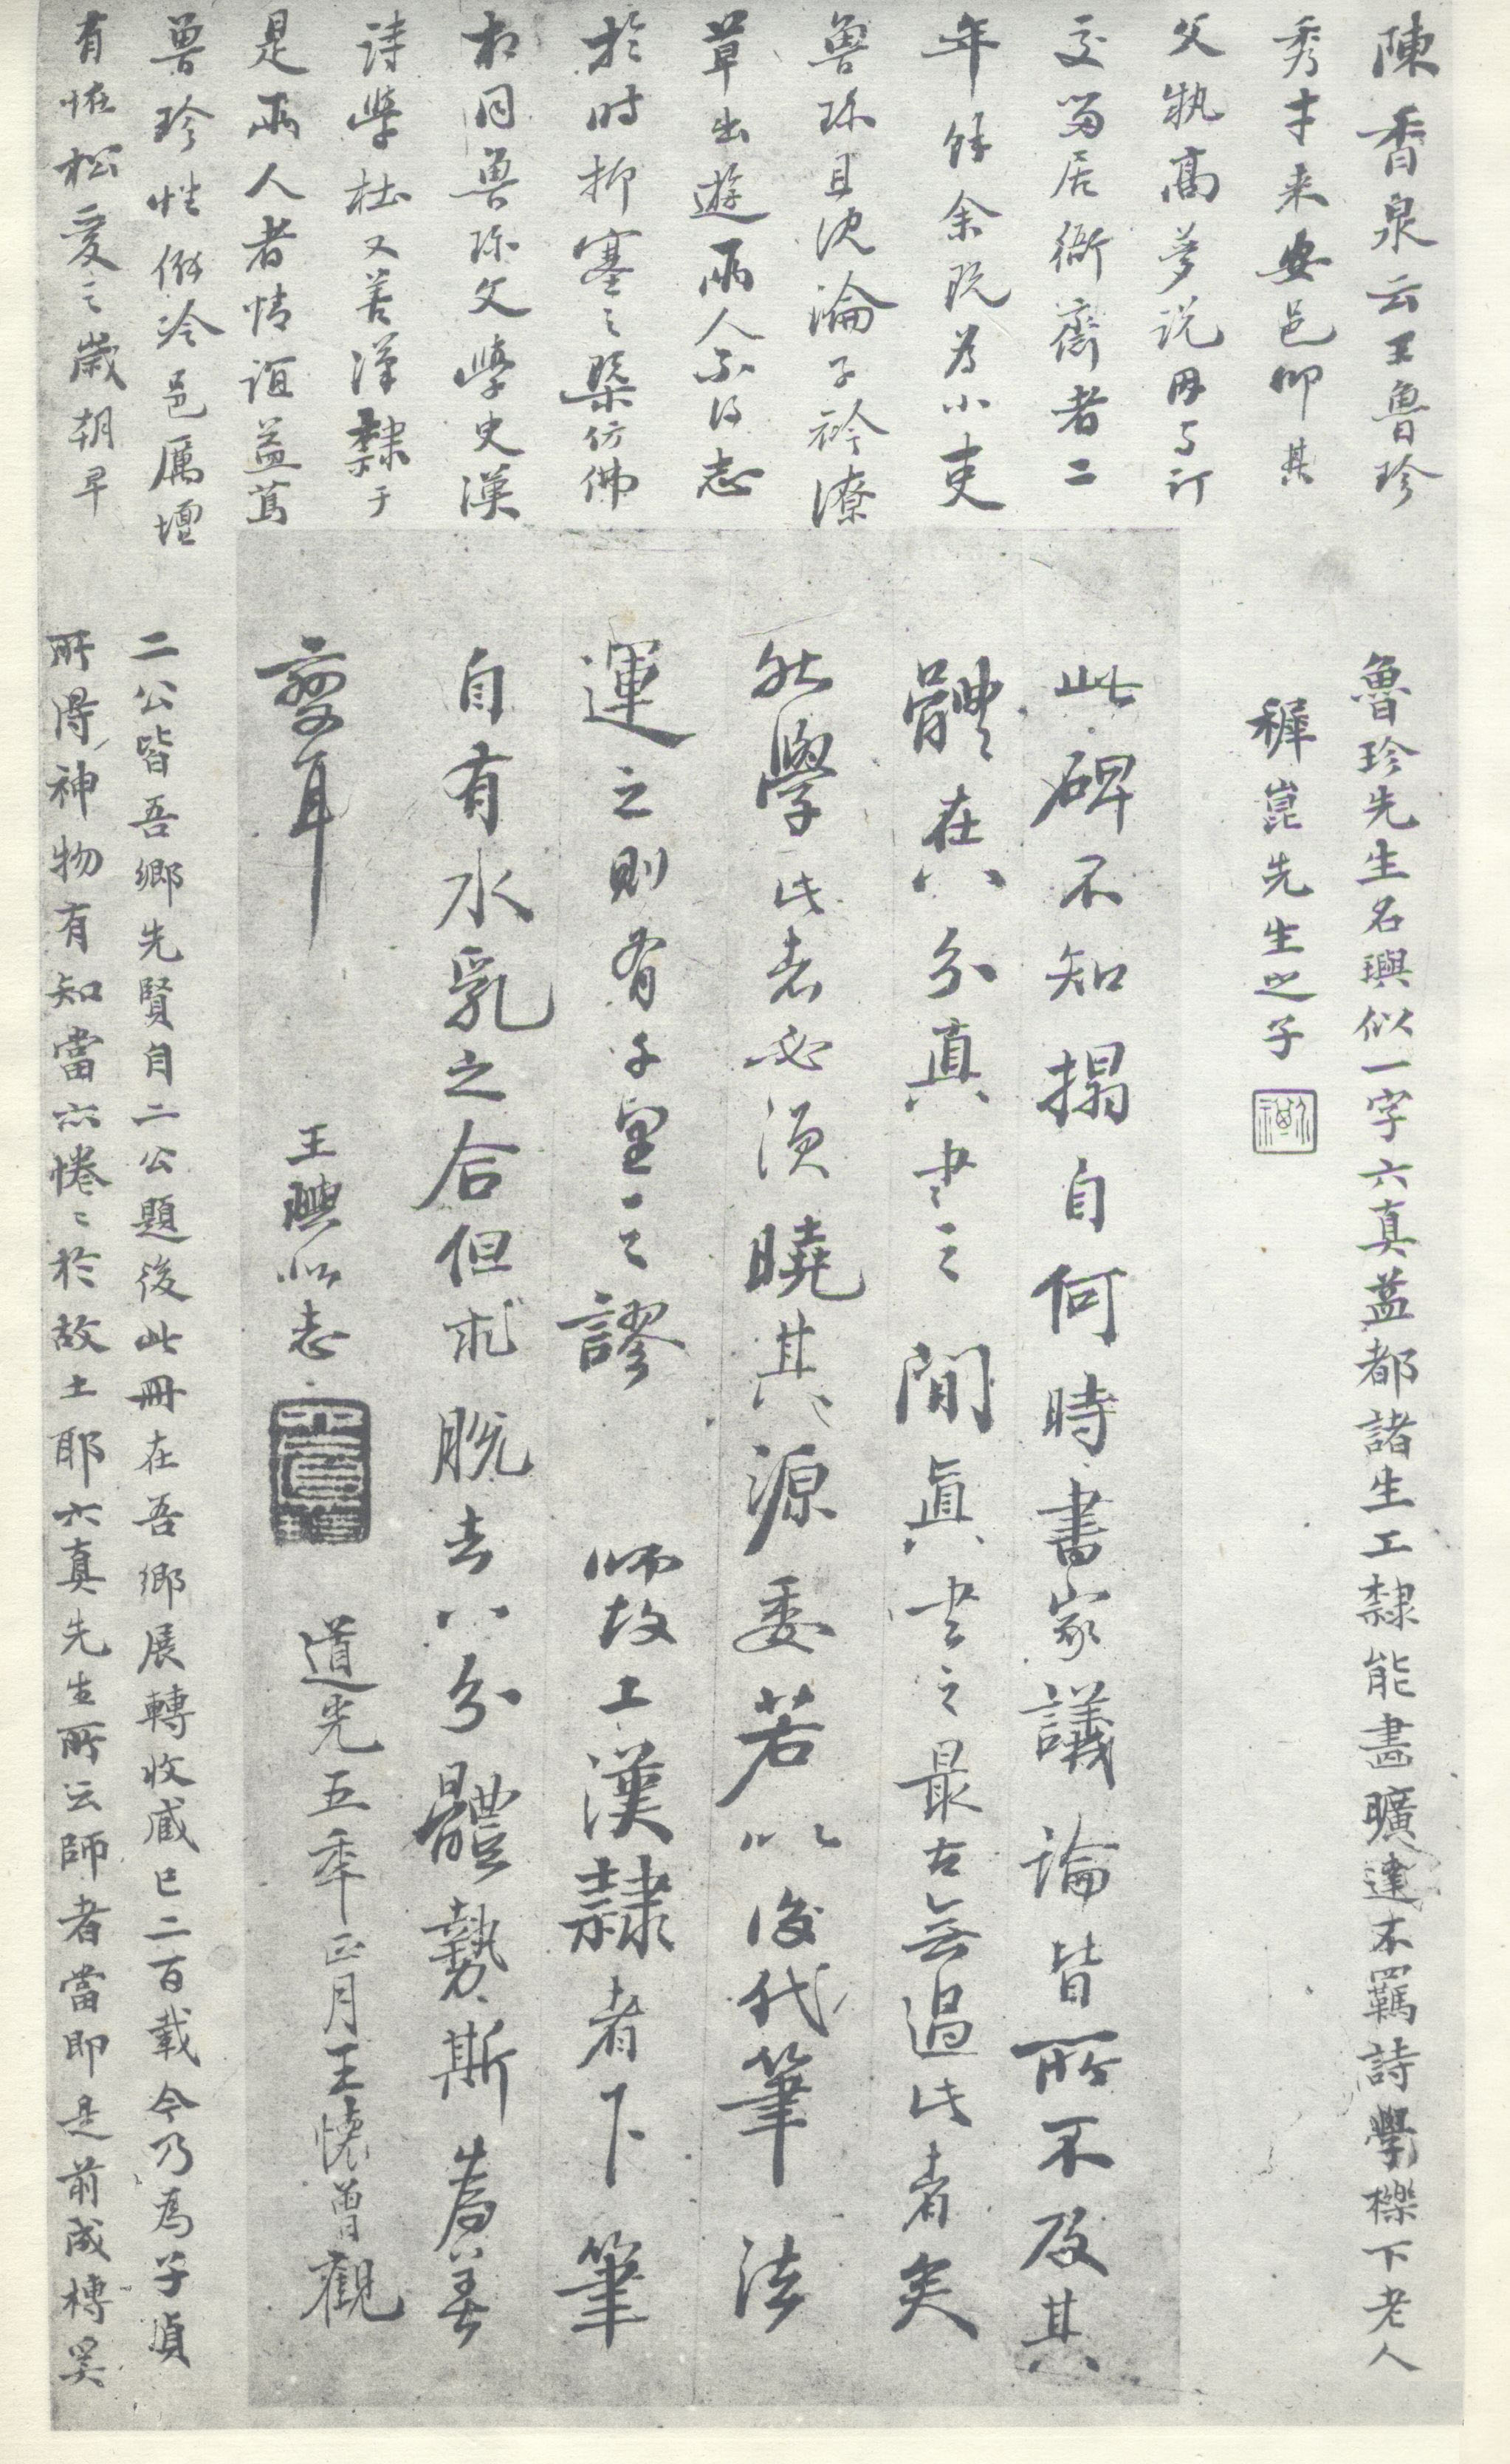 陳香泉云王魯珍
秀才来安邑卯其
父執高夢说因与订
交留居衙齋者二
年餘余既为小吏
魯珍且沈淪子衿潦
草出遊兩人不得志
於时抑塞之槩仿佛
相同魯珍文學史漢
詩學杜又善漢隸于
是兩人者情誼益篤
魯珍性僻冷邑厲壇
有恠松愛之歲朝早
魯珍先生名璵似一字六真益都諸生工隸能畫曠達不羈詩學櫟下老人
穉崑先生之子
此碑不知搨自何時書家議論皆所不及其
體在八分真书之間真书之最古無過此者矣
然學此者必須曉其源委若以後代筆法
運之則有子皇之謬 師故工漢隸者下筆
自有水乳之合但求脱去八分體勢斯為善
變耳
王璵似志
道光五年正月王懷曾觀
二公皆吾鄉先賢自二公題後此冊在吾鄉展轉收藏已二百載今乃為子貞
所得神物有知當亦惓〻於故土耶六真先生所云師者當即是前成槫吴